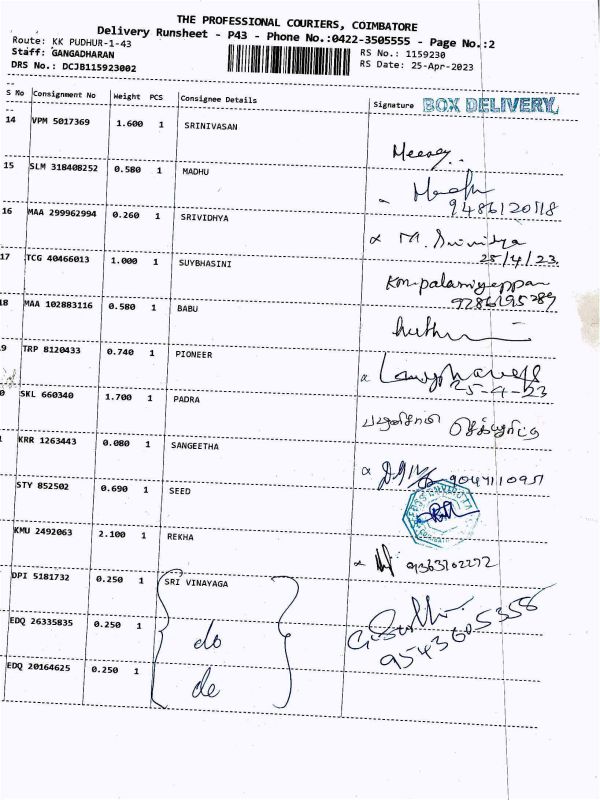 THE PROFESSIONAL COURIERS, COIMBATORE
Delivery Runsheet - P43 - Phone No.:0422-3505555 - Page No.:2
Route: KK PUDHUR-1-43 RS No.: 1159230
Staff: GANGADHARAN RS Date: 25-Apr-2023
DRS No.: DCJB115923002
S No Consignment No Weight PCS Consignee Details Signature BOX DELIVERY
14 VPM 5017369 1.600 1 SRINIVASAN
15 SLM 318408252 0.580 1 MADHU
9486120118
16 MAA 299962994 0.260 1 SRIVIDHYA
25/4/23
17 TCG 40466013 1.000 1 SUYBHASINI
Km.palaniyappan
18 MAA 102883116 0.580 1 BABU
9 TRP 8120433 0.740 1 PIONEER
25-4-23
0 SKL 660340 1.700 1 PADRA
KRR 1263443 0.080 1 SANGEETHA
STY 852502 0.690 1 SEED
KMU 2492063 2.100 1 REKHA
DPI 5181732 0.250 1 SRI VINAYAGA
EDQ 26335835 0.250 1 do
9543605358
EDQ 20164625 0.250 1 de